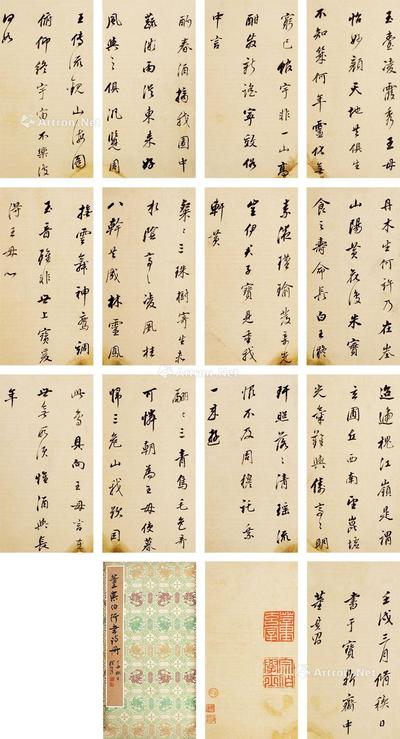 玉臺凌霞秀王母
怡妙顏天地共俱生
不知幾何年靈化無
窮已館宇非一山高
酣發新謠寧效俗
中言
酌春酒摘我園中
蔬微雨從東來好
風與之俱汎覽周
王傳流觀山海圖
俯仰終宇宙不樂復
何如
丹木生何許乃在峚
山陽黃花復朱實
食之壽命長白玉凝
素液瑾瑜發奇光
豈伊君子寶見重我
軒黃
粲〻三珠樹寄生赤
水陰亭〻凌風桂
八幹共成林靈鳳
撫雲舞神鸞調
玉音雖非世上寶爰
得王母心
迢遞槐江嶺是謂
玄圃丘西南望崑墟
光氣難與儔亭〻明
玕照落〻清瑤流
恨不及周穆託乘
一來遊
翩〻三青鳥毛色奇
可憐朝為王母使暮
歸三危山我欲因
此鳥具向王母言在
世無所須惟酒與長
年
壬戌三月脩禊日
書于寶鼎齋中
董其昌
宗伯學士
董宗伯行書詩冊